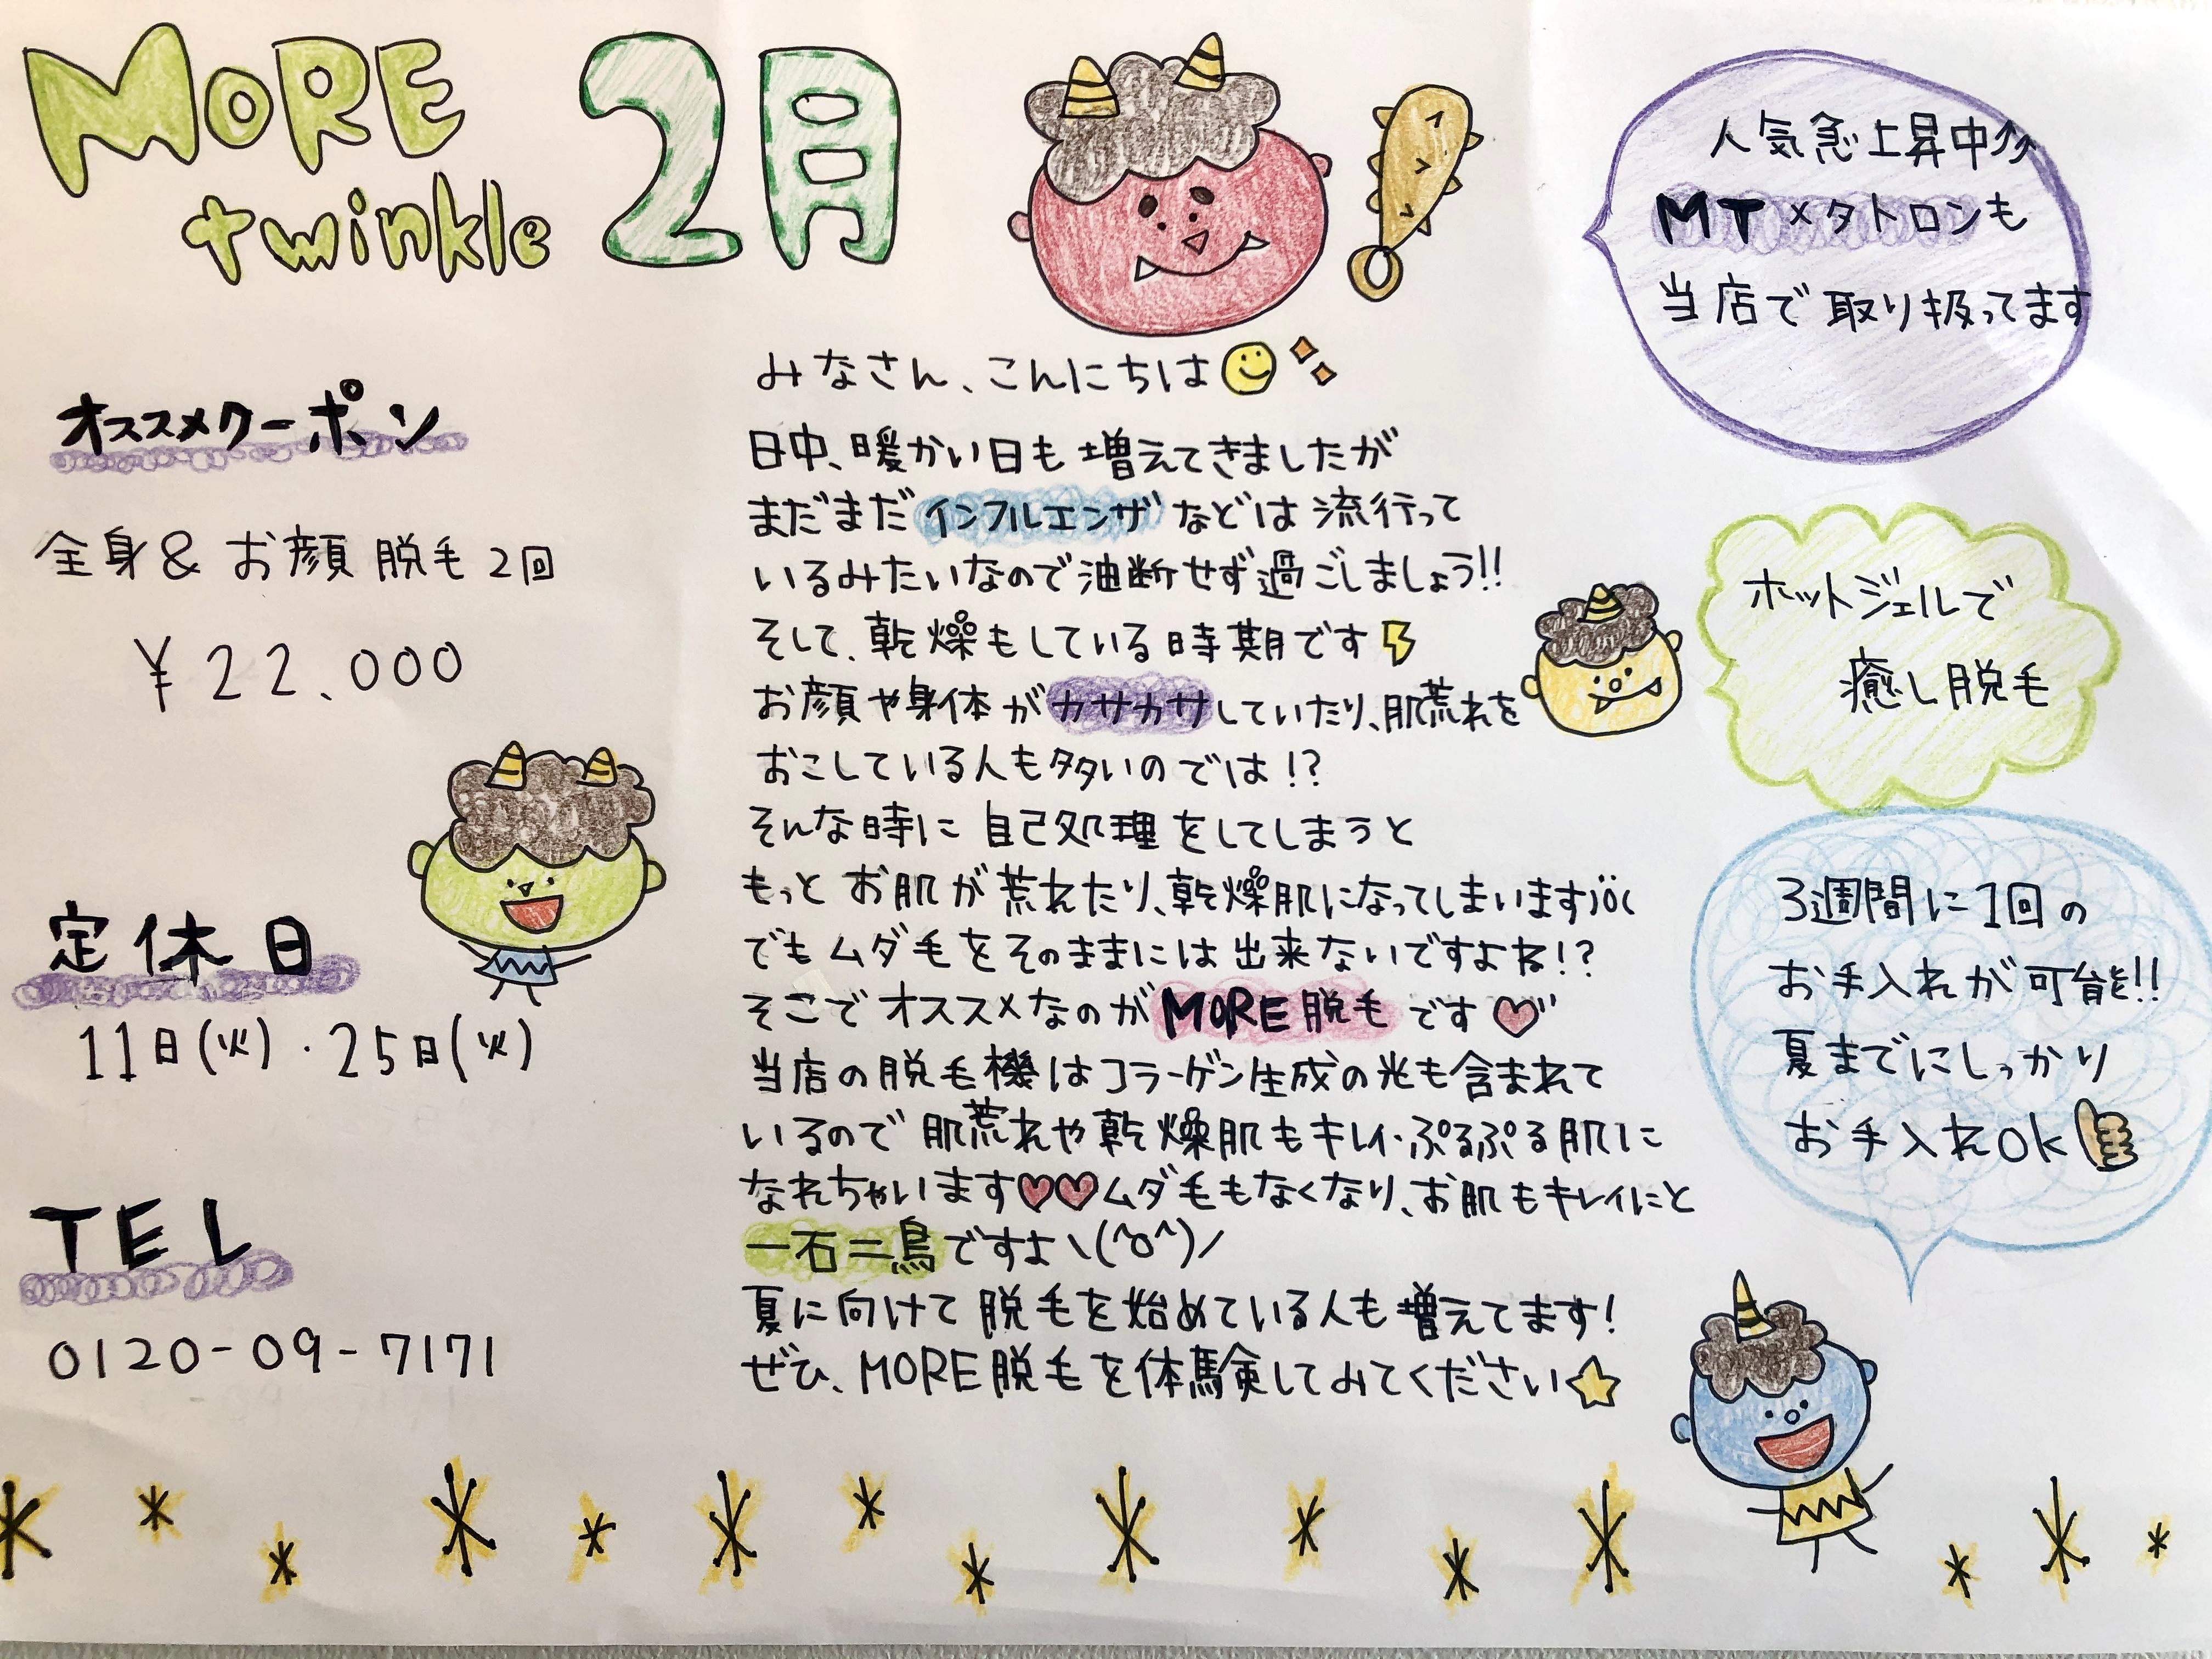 MORE
twinkle
2月
オススメクーポン
全身&お顔脱毛2回
¥22、000
定休日
11日(火)・25日(火)
TEL
0120-09-7171
みなさん、こんにちは
日中、暖かい日も増えてきましたが
まだまだインフルエンザなどは流行って
いるみたいなので油断せず過ごしましょう!!
そして、乾燥もしている時期です
お顔や身体がカサカサしていたり、肌荒れを
おこしている人も多いのでは!?
そんな時に自己処理をしてしまうと
もっとお肌が荒れたり、乾燥肌になってしまいます)ö(
でもムダ毛をそのままには出来ないですよね!?
そこでオススメなのがMORE脱毛です♡
当店の脱毛機はコラーゲン生成の光も含まれて
いるので肌荒れや乾燥肌もキレイ・ぷるぷる肌に
なれちゃいます♡♡ムダ毛もなくなり、お肌もキレイにと
一石二鳥ですよ\(^o^)/
夏に向けて脱毛を始めている人も増えてます!
ぜひ、MORE脱毛を体験してみてください☆
人気急上昇中⇗
MTメタトロンも
当店で取り扱ってます
ホットジェルで
癒し脱毛
3週間に1回の
お手入れが可能!!
夏までにしっかり
お手入れOK